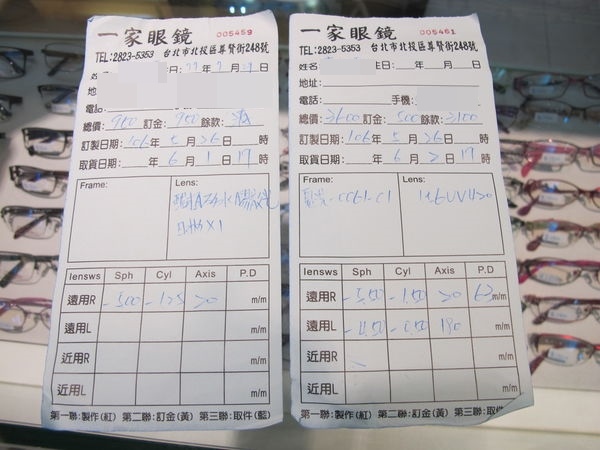 一家眼鏡 005459
TEL:2823-5353 台北市北投區尊賢街248號
姓名 日: 77年7月 日
地
電話
總價: 950 訂金: 950 餘款: 清
訂製日期: 106年5月26日 時
取貨日期: 年6月1日19時
Frame: Lens:
日拋X1
lensws Sph Cyl Axis P.D
遠用R -5.00 -1.25 20 m/m
遠用L m/m
近用R m/m
近用L m/m
第一聯:製作(紅) 第二聯:訂金(黃) 第三聯:取件(藍)
一家眼鏡 005461
TEL:2823-5353 台北市北投區尊賢街248號
姓名 生日: 年 月 日
地址:
電話: 手機:
總價: 3600 訂金: 500 餘款: 3100
訂製日期: 106年5月26日 時
取貨日期: 年6月2日19時
Frame: Lens:
-0061-C1 1.6UV420
lensws Sph Cyl Axis P.D
遠用R -5.50 -1.50 20 63m/m
遠用L -4.50 -0.50 180
近用R m/m
近用L m/m
第一聯:製作(紅) 第二聯:訂金(黃) 第三聯:取件